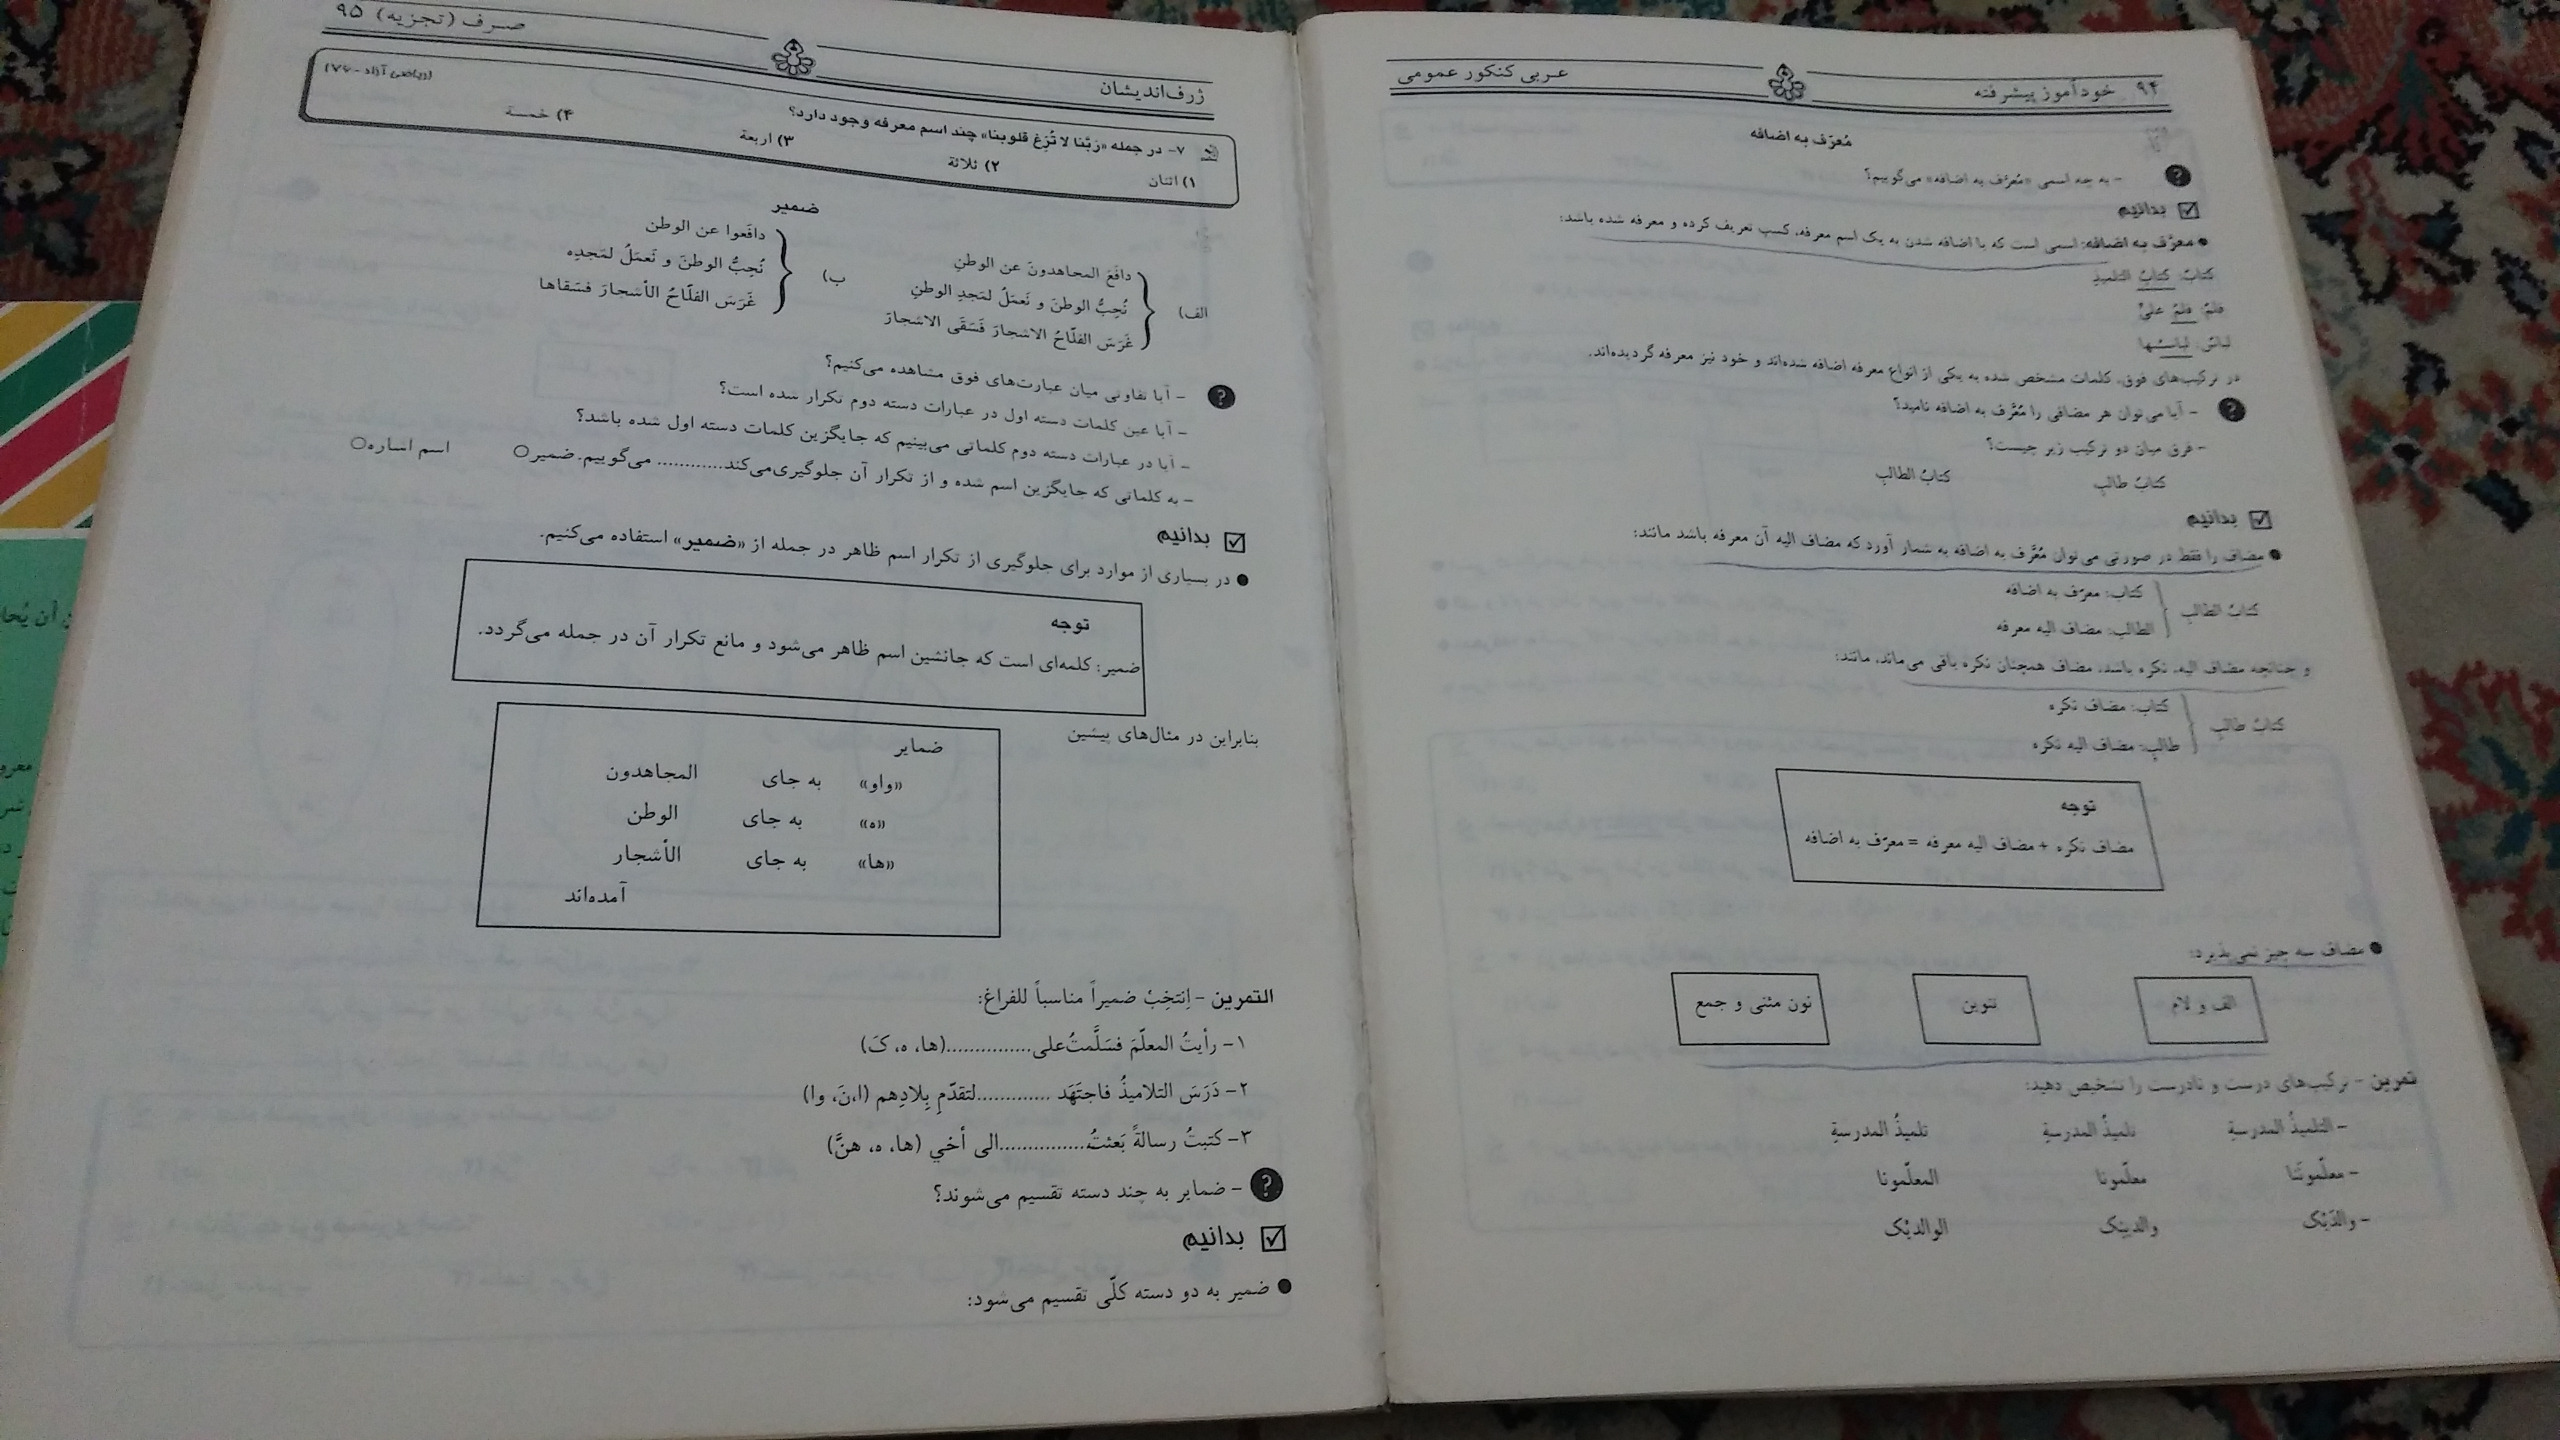 ۹۴ خودآموز پیشرفته
عربی کنکور عمومی
مُعرّف به اضافه
- به چه اسمی «مُعرّف به اضافه» می‌گوییم؟
بدانیم
● معرَّف به اضافه: اسمی است که با اضافه شدن به یک اسم معرفه، کسب تعریف کرده و معرفه شده باشد:
کتابٌ: کتابُ التلمیذِ
قلمٌ: قلمُ علیٍّ
لباسٌ: لباسُها
در ترکیب‌های فوق، کلمات مشخص شده به یکی از انواع معرفه اضافه شده‌اند و خود نیز معرفه گردیده‌اند.
- آیا می‌توان هر مضافی را مُعَرَّف به اضافه نامید؟
- فرق میان دو ترکیب زیر چیست؟
کتابُ طالبٍ کتابُ الطالبِ
بدانیم
● مضاف را فقط در صورتی می‌توان مُعَرَّف به اضافه به شمار آورد که مضاف الیه آن معرفه باشد مانند:
کتابُ الطالبِ
کتاب: معرّف به اضافه
الطالبِ: مضاف الیه معرفه
و چنانچه مضاف الیه، نکره باشد، مضاف همچنان نکره باقی می‌ماند، مانند:
کتابُ طالبٍ
کتاب: مضاف نکره
طالبٍ: مضاف الیه نکره
توجه
مضاف نکره + مضاف الیه معرفه = معرّف به اضافه
● مضاف سه چیز نمی‌پذیرد:
الف و لام تنوین نون مثنی و جمع
تمرین - ترکیب‌های درست و نادرست را تشخیص دهید:
- التلمیذُ المدرسةِ تلمیذُ المدرسةِ تلمیذُ المدرسةِ
- معلّمونَنا معلّمونا المعلّمونا
- والدَیْک والدینِک الوالدیْک
ژرف‌اندیشان
صرف (تجزیه) ۹۵
۷- در جمله «رَبَّنا لا تُزِغ قلوبنا» چند اسم معرفه وجود دارد؟
(ریاضی آزاد - ۷۶)
۱) اثنان ۲) ثلاثة ۳) اربعة ۴) خمسة
ضمیر
الف)
دافَعَ المجاهدونَ عن الوطنِ
نُحِبُّ الوطنَ و نَعمَلُ لمَجدِ الوطنِ
غَرَسَ الفلّاحُ الاشجارَ فَسَقَی الاشجارَ
ب)
دافَعوا عن الوطن
نُحِبُّ الوطنَ و نَعمَلُ لمَجدِه
غَرَسَ الفلّاحُ الأشجارَ فسَقاها
- آیا تفاوتی میان عبارت‌های فوق مشاهده می‌کنیم؟
- آیا عین کلمات دسته اول در عبارات دسته دوم تکرار شده است؟
- آیا در عبارات دسته دوم کلماتی می‌بینیم که جایگزین کلمات دسته اول شده باشد؟
- به کلماتی که جایگزین اسم شده و از تکرار آن جلوگیری می‌کند............ می‌گوییم. ضمیر○ اسم اشاره○
بدانیم
● در بسیاری از موارد برای جلوگیری از تکرار اسم ظاهر در جمله از «ضمیر» استفاده می‌کنیم.
توجه
ضمیر: کلمه‌ای است که جانشین اسم ظاهر می‌شود و مانع تکرار آن در جمله می‌گردد.
بنابراین در مثال‌های پیشین
ضمایر
«واو» به جای المجاهدون
«ه» به جای الوطن
«ها» به جای الأشجار
آمده‌اند
التمرین - اِنتخِبْ ضمیراً مناسباً للفراغ:
۱- رأیتُ المعلّمَ فسَلَّمتُ علی...............(ها، ه، کَ)
۲- دَرَسَ التلامیذُ فاجتَهَد .............لتقدّمِ بِلادِهم (ا، نَ، وا)
۳- کتبتُ رسالةً بَعثتُ...............الی أخي (ها، ه، هنَّ)
- ضمایر به چند دسته تقسیم می‌شوند؟
بدانیم
● ضمیر به دو دسته کلّی تقسیم می‌شود: